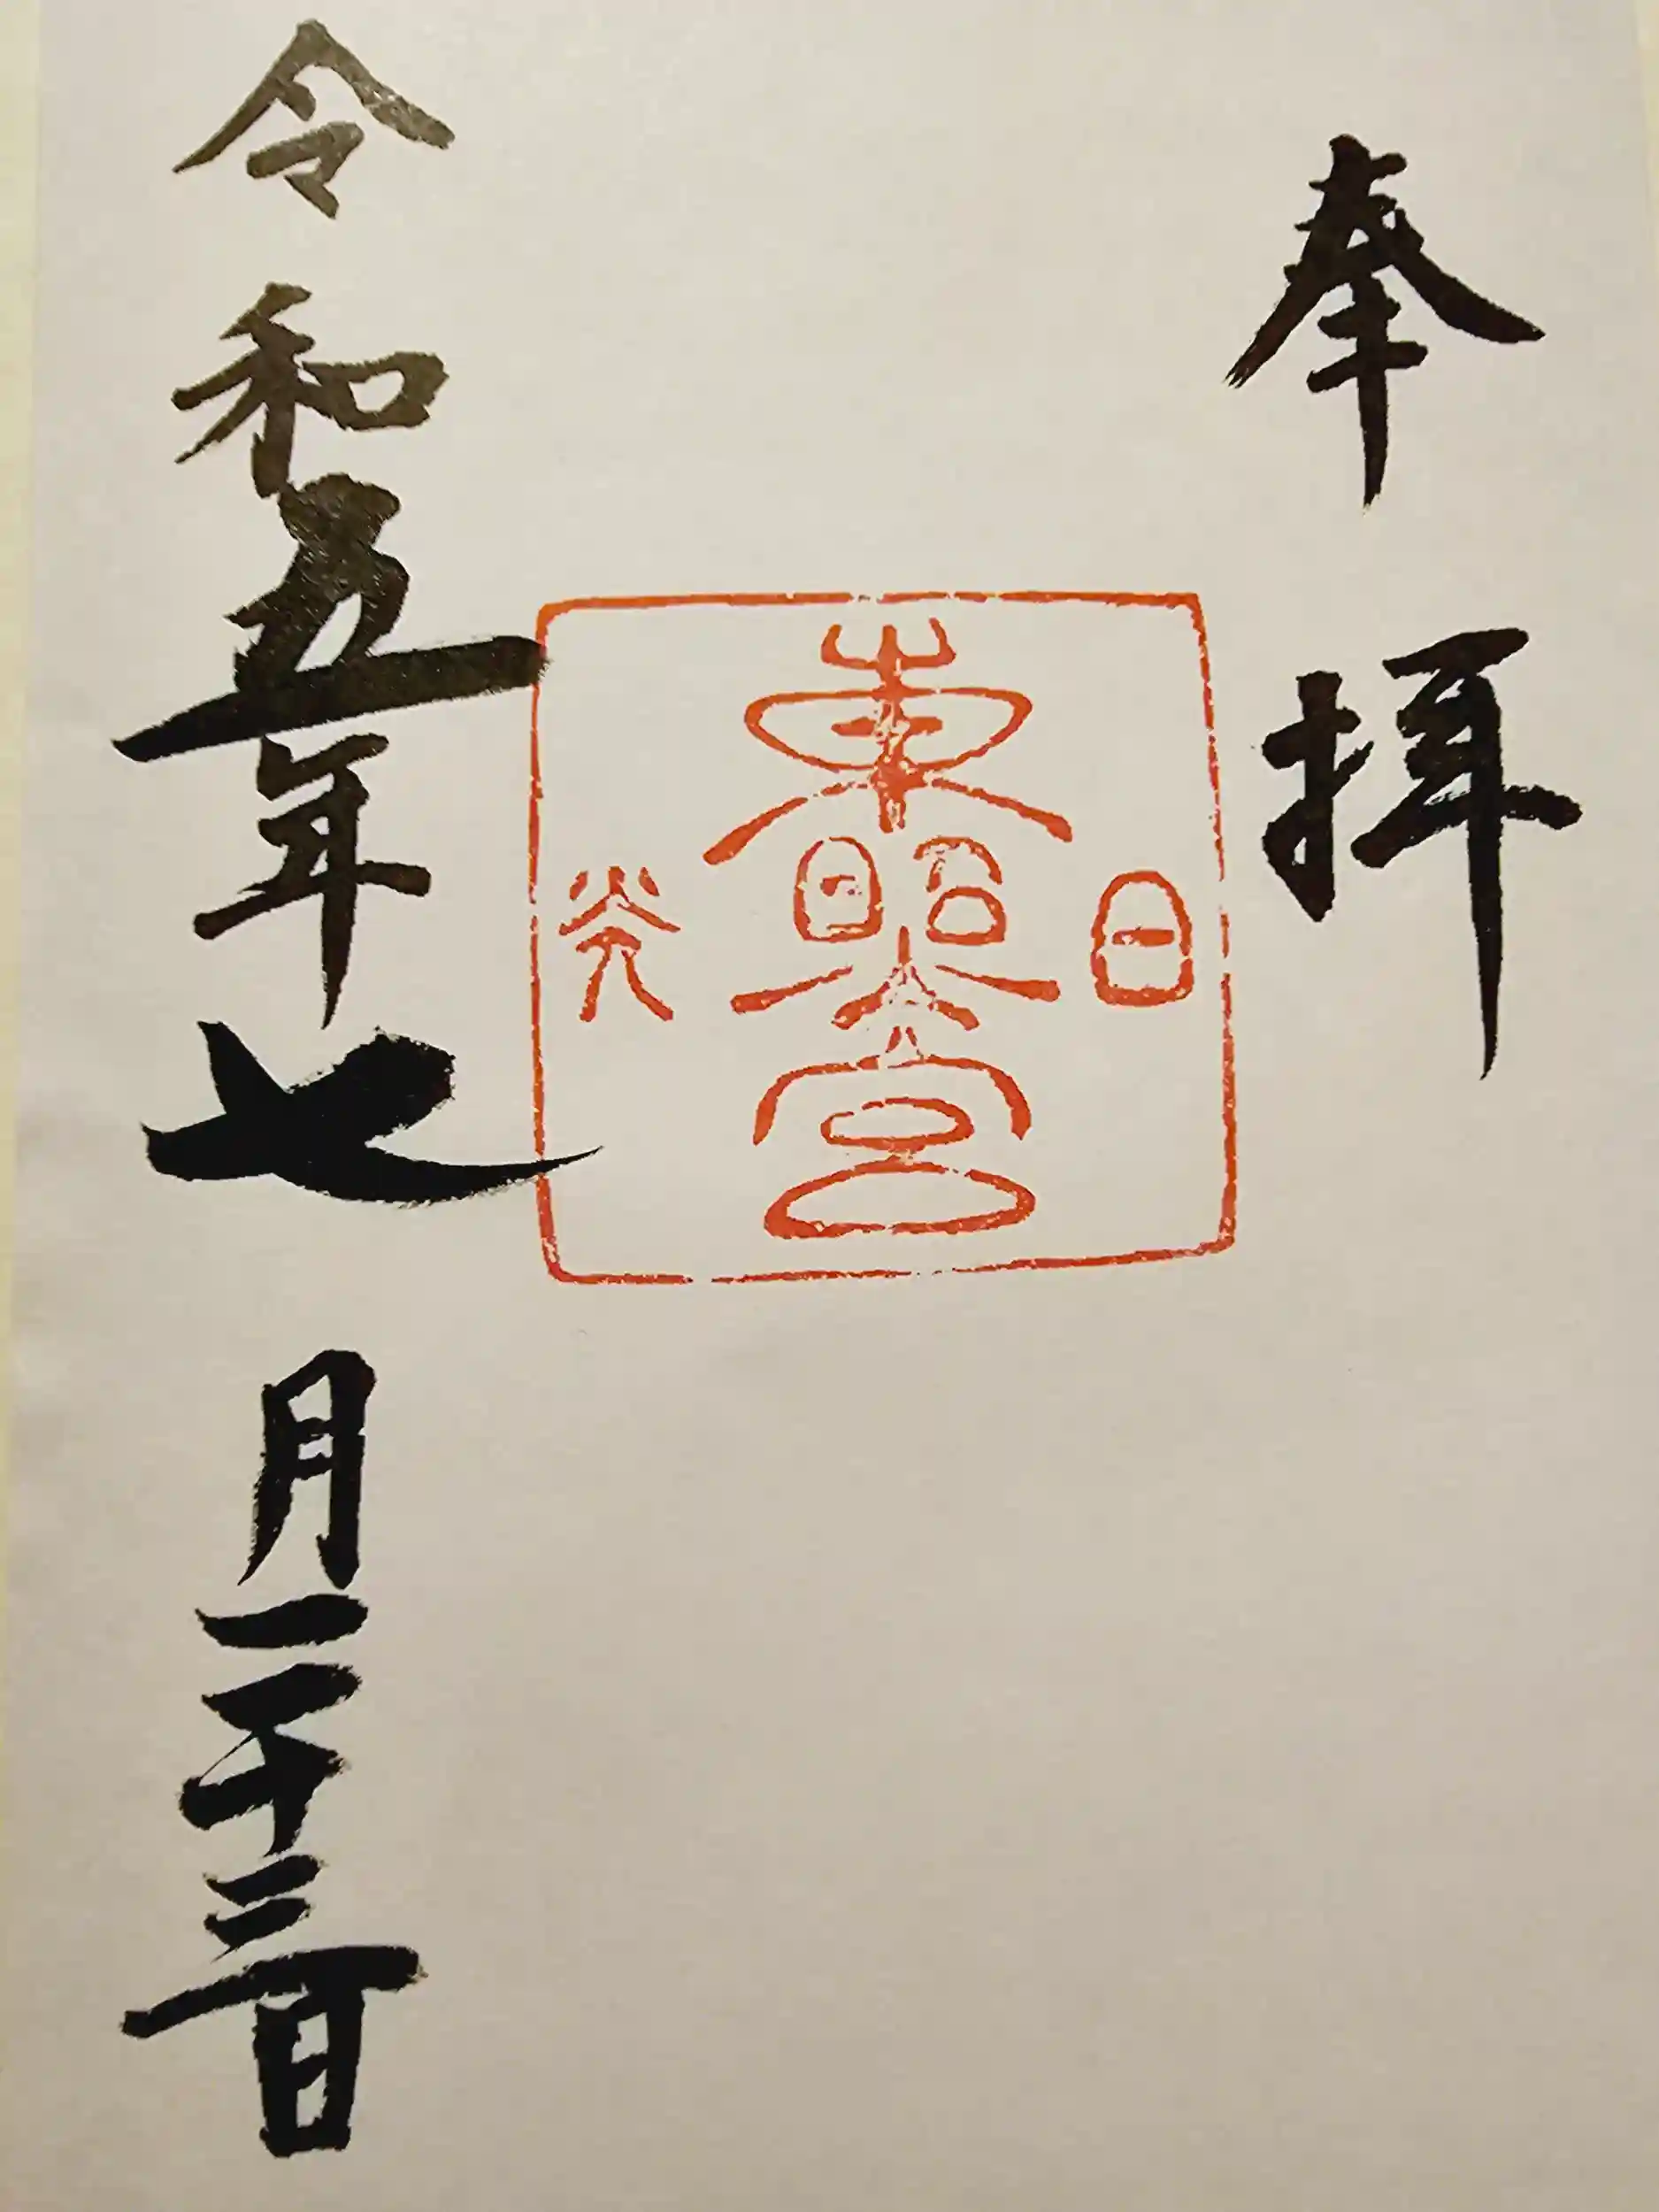 奉拝
日光
東照宮
令和五年七月二十三日